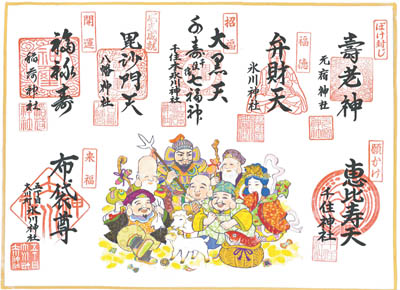 ぼけ封じ
壽老神
元宿神社
福徳
弁財天
氷川神社
招福
大黒天
千寿七福神
千住本氷川神社
毘沙門天
八幡神社
開運
福禄寿
稲荷神社
願かけ
恵比寿天
千住神社
来福
布袋尊
大川町氷川神社